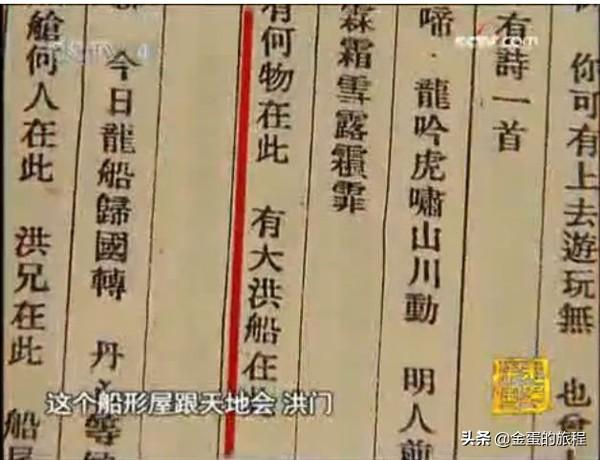 你可有上去遊玩無 也
有詩一首
啼·龍吟虎嘯山川動 明人
霖霜雪露 霏
有何物在此 有大洪船在
今日龍船歸國轉 丹
艙何人在此 洪兄在此 船
这个船形屋跟天地会 洪门
cctv.com
头条 @金蛋的旅程